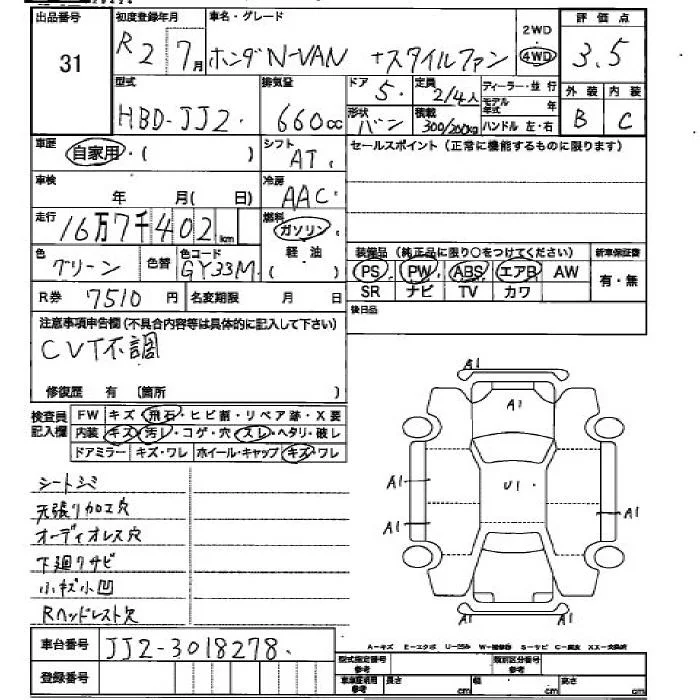 出品番号
31
初度登録年月
R2 7月
車名・グレード
ホンダN-VAN +スタイルファン
2WD
4WD
評価点
3.5
外装 内装
B C
型式
HBD-JJ2.
排気量
660cc
ドア 5.
定員 2/4人
形状 バン
積載 300/200kg
ディーラー・並行
モデル年式 年
ハンドル 左・右
車歴
自家用・( )
シフト
AT.
セールスポイント (正常に機能するものに限ります)
車検
年 月( 日)
冷房
AAC.
走行
16万7千402km
燃料
ガソリン
軽油
( )
色
グリーン
色替
色コード
GY33M
装備品 (純正品に限り○をつけてください)
PS PW ABS エアB AW
SR ナビ TV カワ
新車保証書
有・無
R券 7510円
名変期限 月 日
後日品
注意事項申告欄(不具合内容等は具体的に記入して下さい)
CVT不調
修復歴 有 (箇所 )
検査員記入欄
FW キズ・飛石・ヒビ割・リペア跡・X要
内装 キズ・汚レ・コゲ・穴・スレ・ヘタリ・破レ
ドアミラー キズ・ワレ ホイール・キャップ キズ・ワレ
シートシミ
天張り加工穴
オーディオレス穴
下廻りサビ
小キズ小凹
Rヘッドレスト欠
A1
A1
U1.
A1
A1
A1
A1 A1
車台番号
JJ2-3018278.
登録番号
A-キズ E-エクボ U-凹み W-補修跡 S-サビ C-腐食 XX-交換済
型式指定番号 参考
類別区分番号 参考
車検証記載 参考
長さ cm
幅 cm
高さ cm